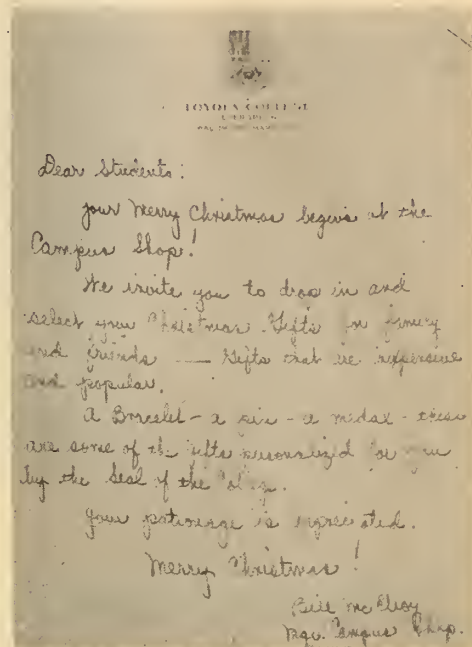 LOYOLA COLLEGE
Dear Students:
Your Merry Christmas begins at the
Campus Shop!
We invite you to drop in and
select your Christmas Gifts for family
and friends — Gifts that are inexpensive
and popular.
A Bracelet - a pin - a medal - these
are some of the gifts personalized for you
by the Seal of the College.
Your patronage is appreciated.
Merry Christmas!
Bill McElroy
Mgr. Campus Shop.